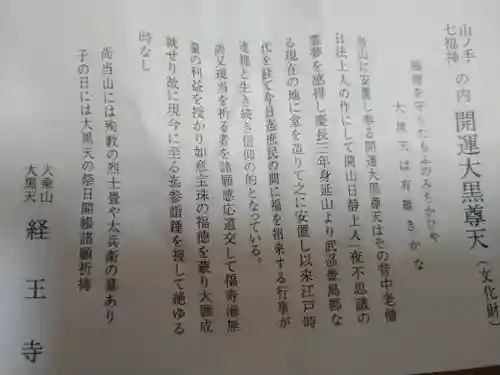 山ノ手
七福神 の内 開運大黒尊天(文化財)
大黒天は有難きかな
当山に安置し奉る開運大黒尊天はその昔中老僧
日法上人の作にして開山日静上人一夜不思議の
霊夢を感得し慶長三年身延山より武蔵豊島郡な
る現在の地に堂を造りて之に安置し以来江戸時
代を経て今日迄庶民の間に福を招来する行事が
連綿と生き続き信仰の的となっている。
尚又現当を祈る者を諸願感応道交して福寿海無
量の利益を授かり如意宝珠の福徳を蒙り大願成
就せり故に現今に至る迄参詣踵を接して絶ゆる
時なし
尚当山には殉教の烈士畳や太兵衛の墓あり
子の日には大黒天の祭日開帳諸願祈祷
大乗山
大黒天 経王寺